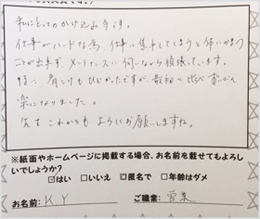 私にとってのかけ込み寺です。
仕事がハードな為、仕事に集中してしまうと体にかまう
ことが出来ず、メンテナンスに伺いながら頑張っています。
特に肩こりもひどかったですが、最初に比べ ずいぶん
楽になりました。
先生これからもよろしくお願いしますね。
※紙面やホームページに掲載する場合、お名前を載せてもよろし
いでしょうか? ☑はい □いいえ ☑匿名で □年齢はダメ
お名前: K.Y ご職業: 営業